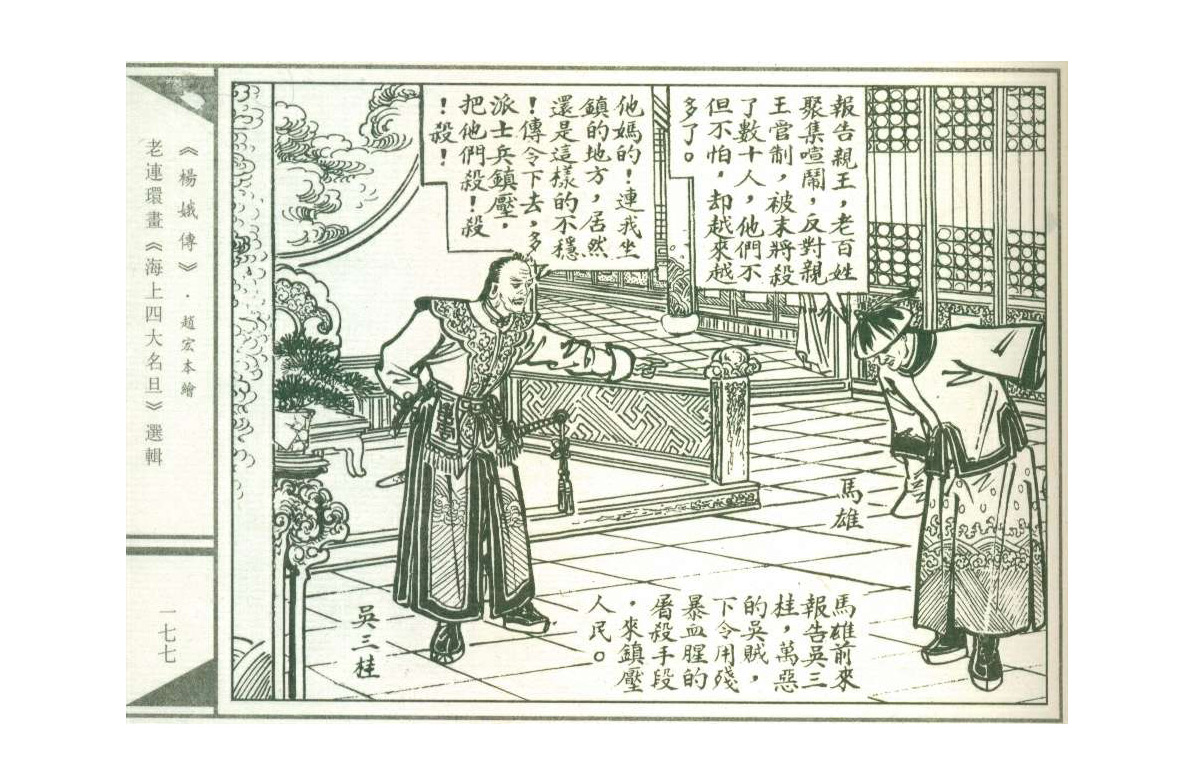 報告親王，老百姓
聚集喧鬧，反對親
王管制，被末將殺
了數十人，他們不
但不怕，却越來越
多了。
他媽的！連我坐
鎮的地方，居然
還是這樣的不穩
！傳令下去，多
派士兵鎮壓，
把他們殺！殺
！殺！
馬雄
吳三桂
馬雄前來
報告吳三
桂，萬惡
的吳賊，
下令用殘
暴血腥的
屠殺手段
，來鎮壓
人民。
《楊娥傳》．趙宏本繪
老連環畫《海上四大名旦》選輯
一七七